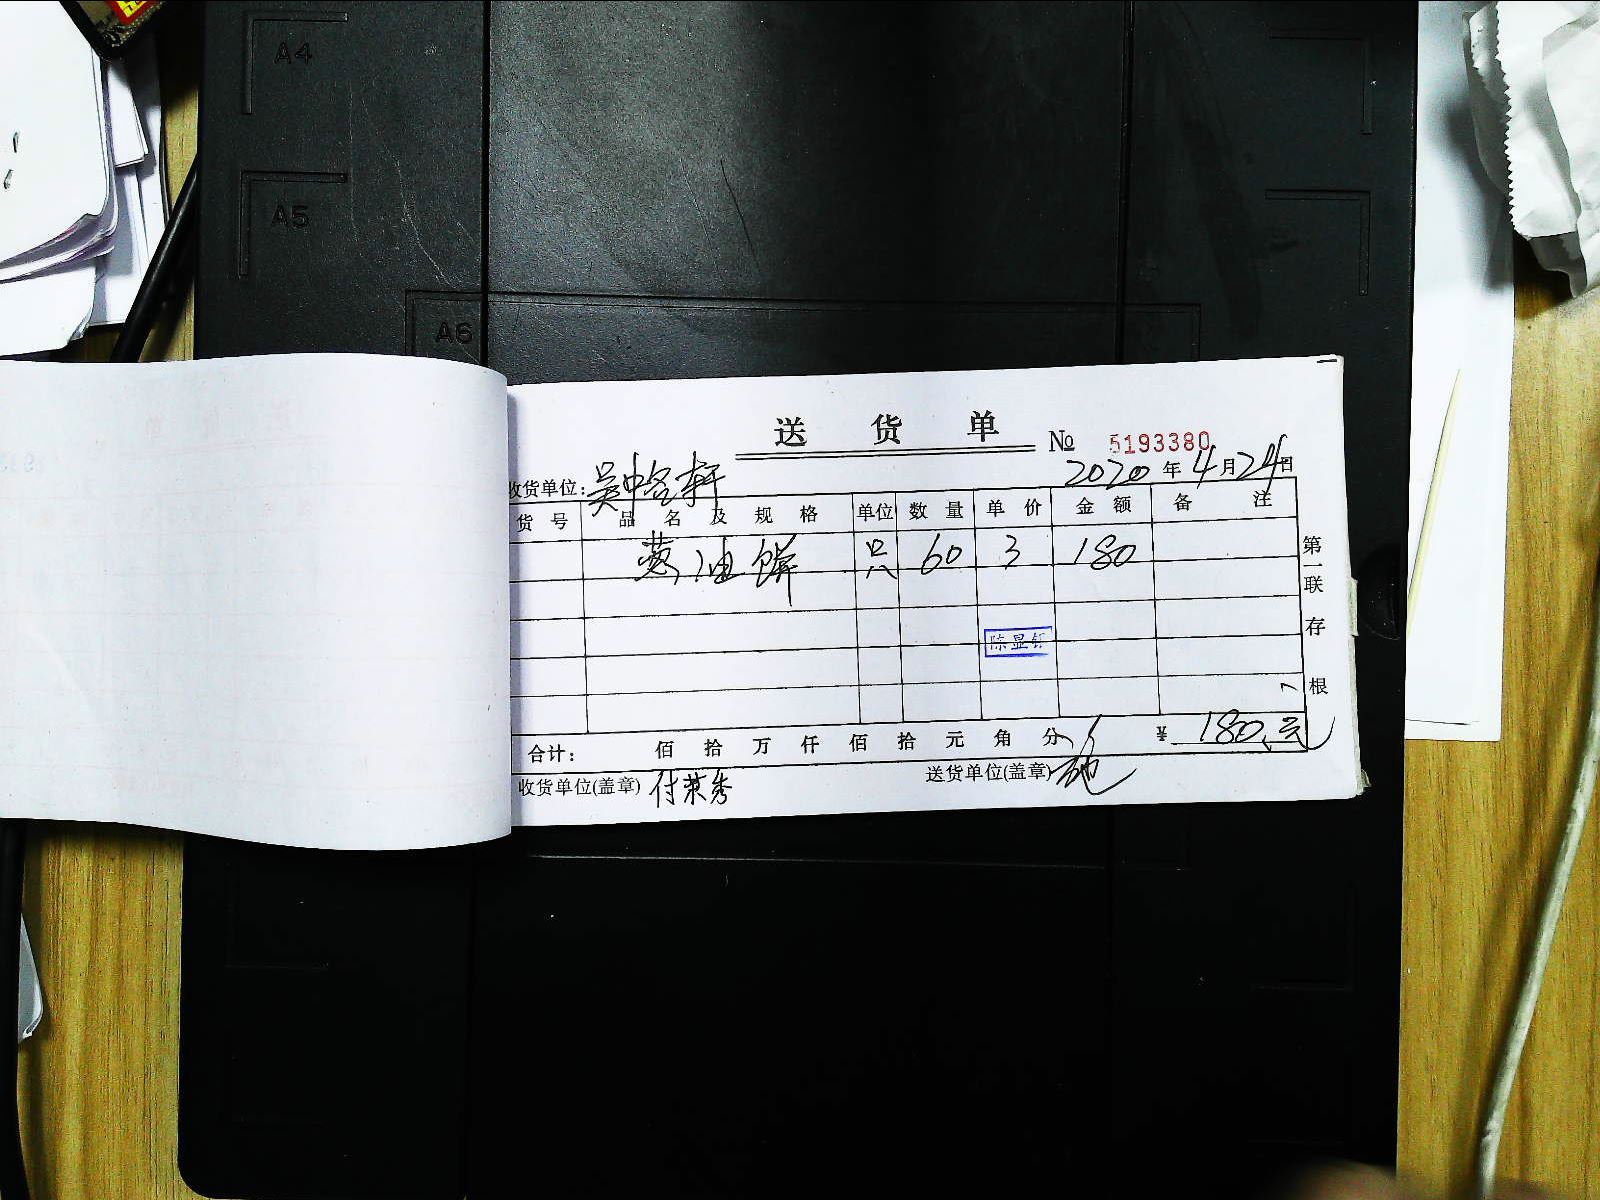 A4
A5
A6
送货单
№ 5193380
收货单位：吴中名轩
2020年4月24日
货号 品名及规格 单位 数量 单价 金额 备注
葱油饼 只 60 3 180
陈显
合计： 佰拾万仟佰拾元角分 ¥ 180元
收货单位(盖章) 付菜秀
送货单位(盖章)
第一联存根